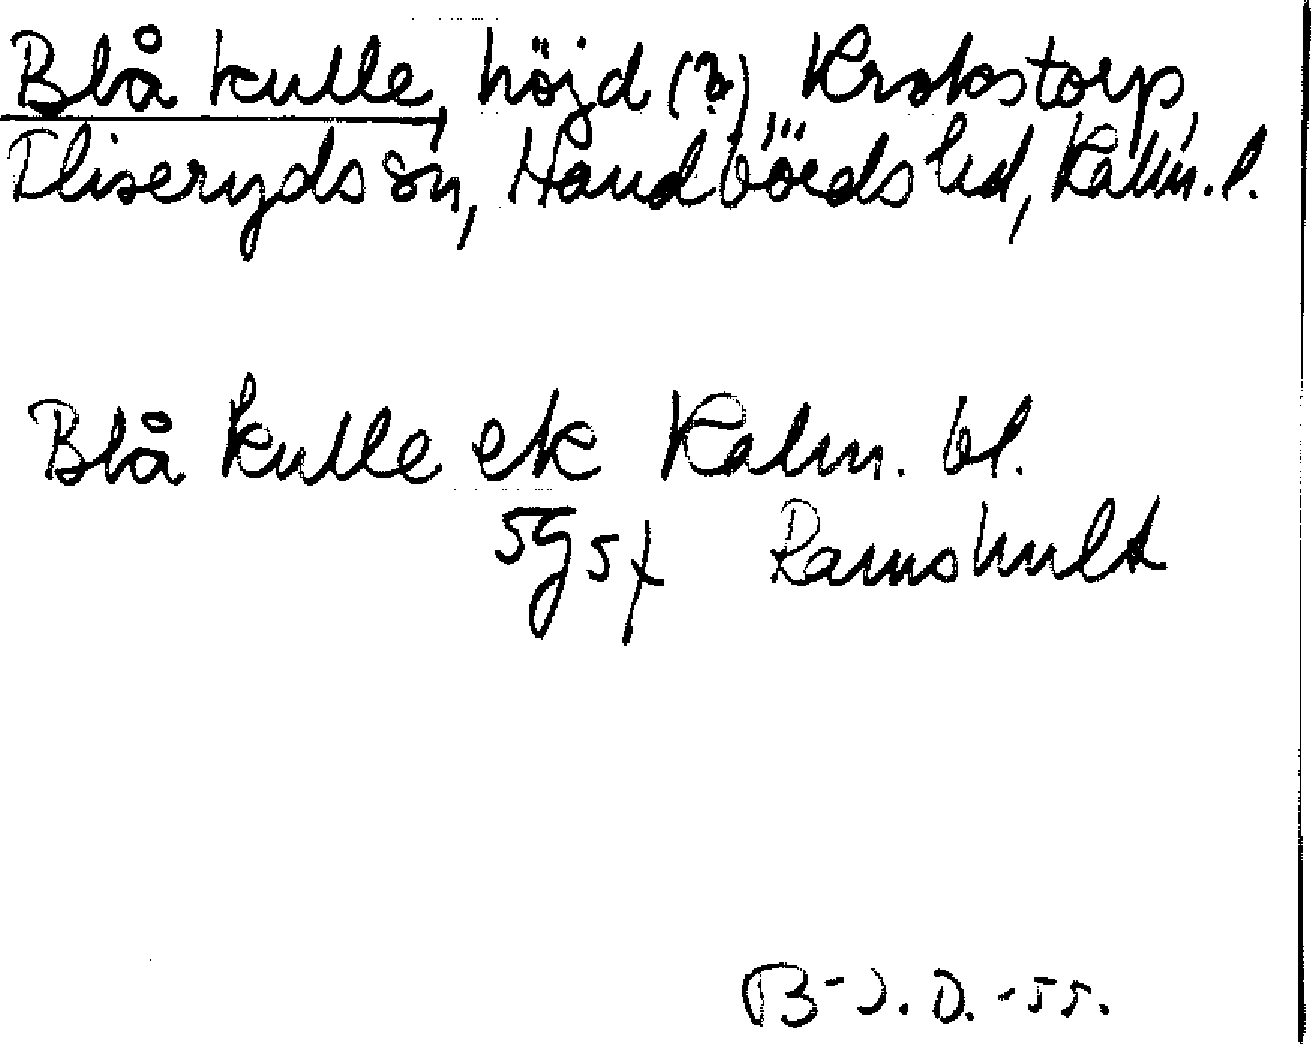 Blå kulle, höjd (?), Krokstorp,
Fliseryds sn, Handbörds hd, Kalm. l.
Blå kulle ek Kalm. bl.
5g5f Ramshult
B-J. D. -55.